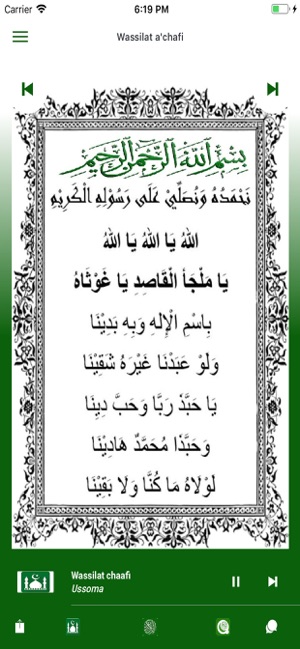 Carrier 6:19 PM
Wassilat a'chafi
بِسْمِ اللهِ الرَّحْمٰنِ الرَّحِيْمِ
نَحْمَدُهُ وَنُصَلِّيْ عَلَى رَسُوْلِهِ الْكَرِيْمِ
اللهُ يَا اللهُ يَا اللهُ
يَا مَلْجَأَ الْقَاصِدِ يَا غَوْثَاهُ
بِاسْمِ الْإِلٰهِ وَبِهِ بَدِيْنَا
وَلَوْ عَبَدْنَا غَيْرَهُ شَقِيْنَا
يَا حَبَّذَ رَبًّا وَحَبَّ دِينَا
وَحَبَّذَا مُحَمَّدٌ هَادِيْنَا
لَوْلَاهُ مَا كُنَّا وَلَا بَقِيْنَا
Wassilat chaafi
Ussoma